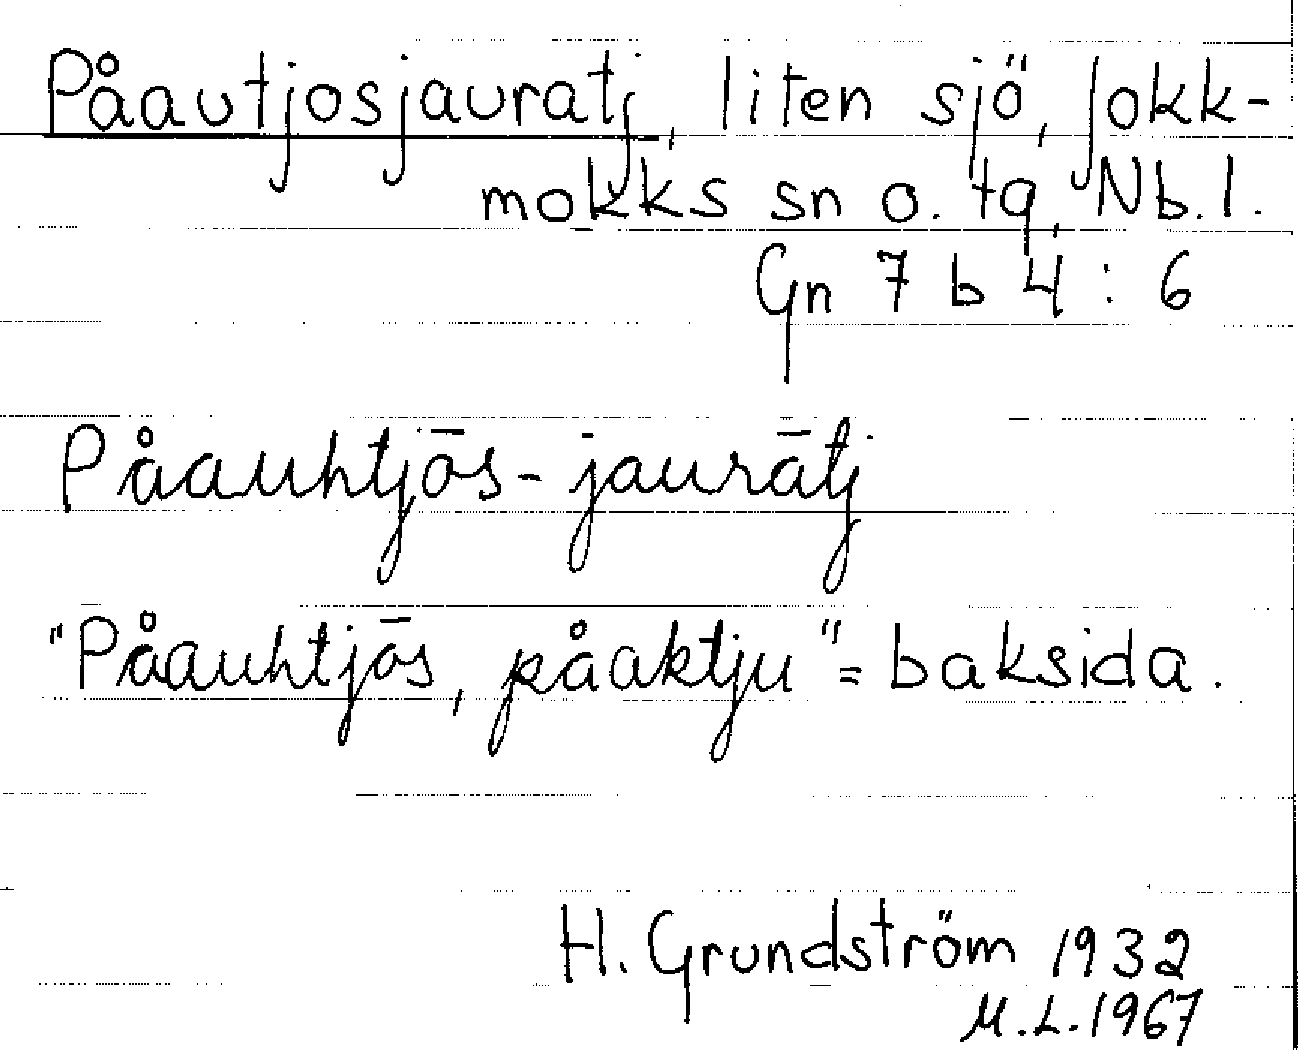 Påautjosjauratj, liten sjö, Jokk-
mokks sn o. tg, Nb. l.
Gn 7 b 4 : 6
Påauhtjōs-jaurātj
"Påauhtjōs, påaktju" = baksida.
H. Grundström 1932
M.L. 1967